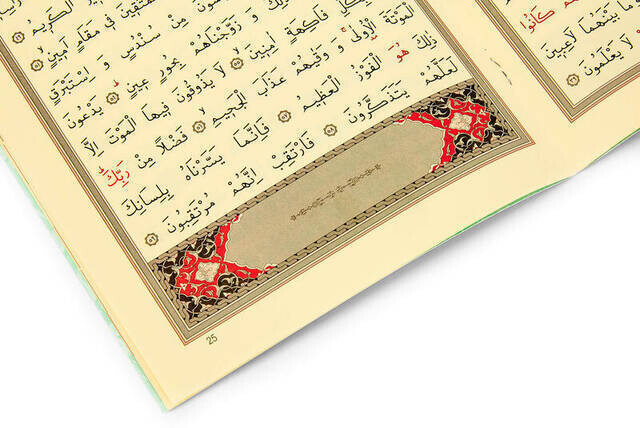 الْكَرِيمُ
الْمُتَّقِينَ فِي مَقَامٍ اَمِينٍ
مِنْ سُنْدُسٍ وَ اِسْتَبْرَقٍ
وَ زَوَّجْنَاهُمْ بِحُورٍ عِينٍ يَدْعُونَ
بِكُلِّ فَاكِهَةٍ اٰمِنِينَ لَا يَذُوقُونَ فِيهَا الْمَوْتَ اِلَّا
الْمَوْتَةَ الْاُولٰى وَ وَقٰيهُمْ عَذَابَ الْجَحِيمِ فَضْلًا مِنْ رَبِّكَ
ذٰلِكَ هُوَ الْفَوْزُ الْعَظِيمُ ٥٧ فَاِنَّمَا يَسَّرْنَاهُ بِلِسَانِكَ
لَعَلَّهُمْ يَتَذَكَّرُونَ ٥٨ فَارْتَقِبْ اِنَّهُمْ مُرْتَقِبُونَ ٥٩
25
كَانُوا
مَا بَيْنَهُمَا لَاعِبِينَ
لَا يَعْلَمُونَ